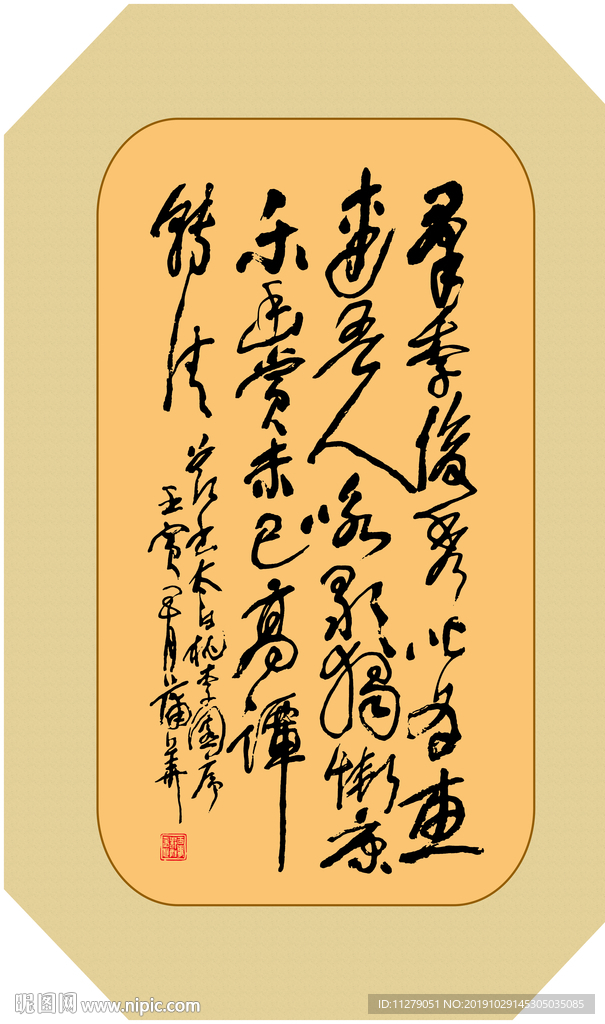 羣季俊秀以為惠
連吾人咏歌獨慚康
樂幽賞未已高譚
轉清
太白桃李園序
壬寅 月蒲華
昵图网 www.nipic.com
ID:11279051 NO:20191029145305035085